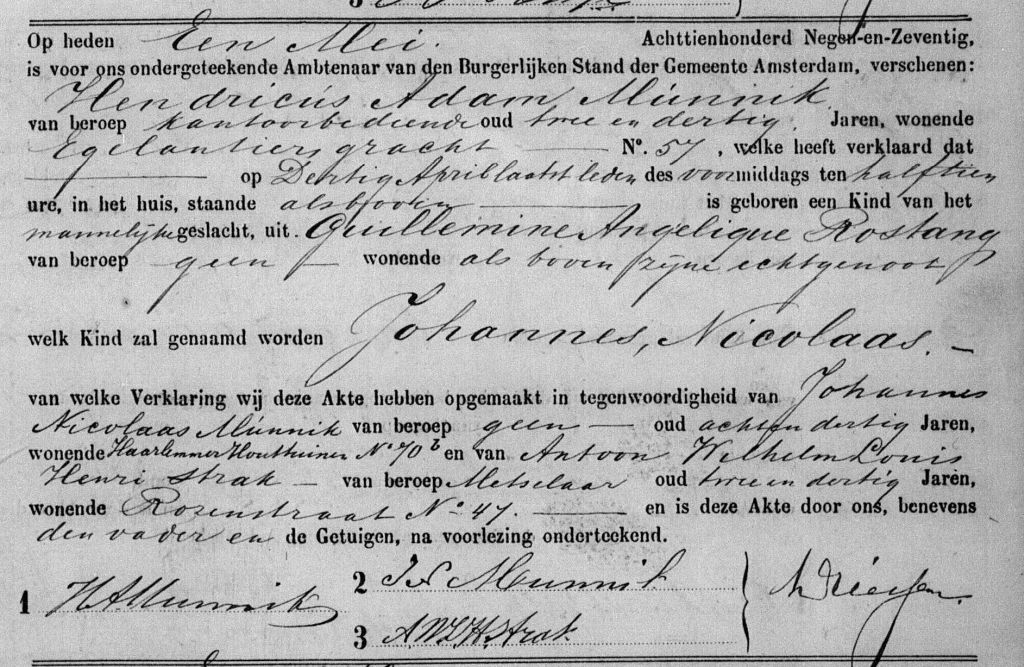 Op heden Een Mei. Achttienhonderd Negen-en-Zeventig,
is voor ons ondergeteekende Ambtenaar van den Burgerlijken Stand der Gemeente Amsterdam, verschenen:
Hendricus Adam Munnik
van beroep kantoorbediende oud twee en dertig. Jaren, wonende
Egelantiersgracht — No. 57, welke heeft verklaard dat
— op Dertig April laatstleden des voormiddags ten half tien
ure, in het huis, staande als boven — is geboren een Kind van het
mannelijke geslacht, uit. Guillemine Angelique Rostang
van beroep geen — wonende als boven zijne echtgenoot
welk Kind zal genaamd worden Johannes, Nicolaas. —
van welke Verklaring wij deze Akte hebben opgemaakt in tegenwoordigheid van Johannes
Nicolaas Munnik van beroep geen — oud acht en dertig Jaren,
wonende Haarlemmer Houttuinen No 70 b en van Antoon Wilhelm Louis
Henri Strak — van beroep Metselaar oud twee en dertig Jaren,
wonende Rozenstraat No 47. — en is deze Akte door ons, benevens
den vader en de Getuigen, na voorlezing onderteekend.
1 HAMunnik
2 JN Munnik
3 A.W.L.H. Strak